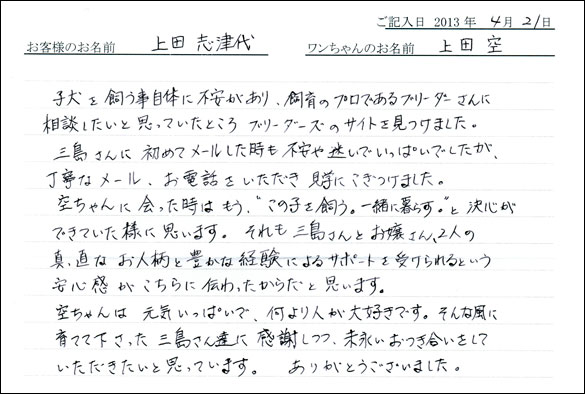 ご記入日 2013年 4月 21日
お客様のお名前 上田 志津代 ワンちゃんのお名前 上田 空
子犬を飼う事自体に不安があり、飼育のプロであるブリーダーさんに
相談したいと思っていたところ ブリーダーズのサイトを見つけました。
三島さんに初めてメールした時も不安や迷いでいっぱいでしたが、
丁寧なメール、お電話をいただき 見学にこぎつけました。
空ちゃんに会った時はもう、"この子を飼う。一緒に暮らす。"と決心が
できていた様に思います。それも三島さんとお嬢さん、2人の
真っ直な お人柄と豊かな経験によるサポートを受けられるという
安心感がこちらに伝わったからだと思います。
空ちゃんは 元気いっぱいで、何より人が大好きです。そんな風に
育てて下さった 三島さん達に感謝しつつ、末永いおつき合いをして
いただきたいと思っています。 ありがとうございました。